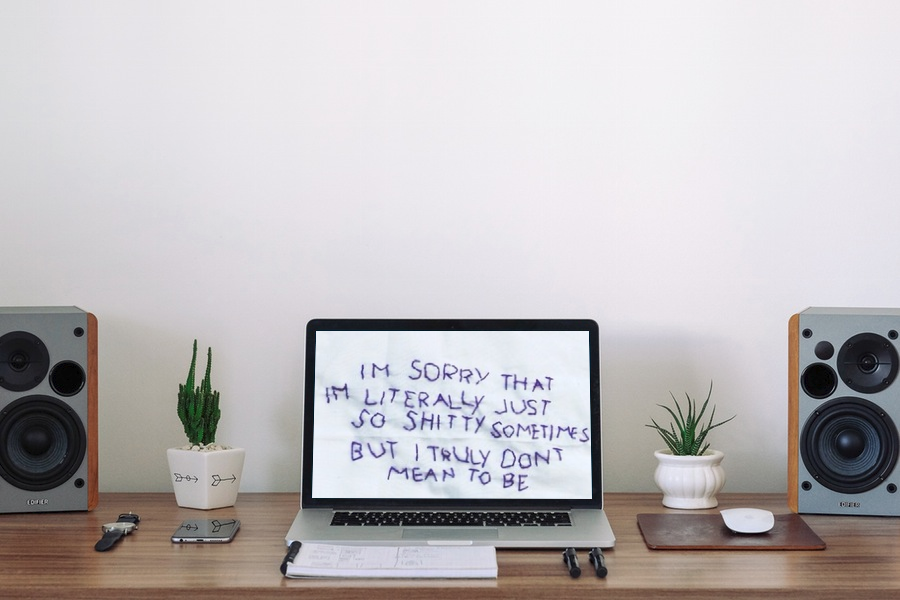 IM SORRY THAT
IM LITERALLY JUST
SO SHITTY SOMETIMES
BUT I TRULY DONT
MEAN TO BE
EDIFIER
EDIFIER